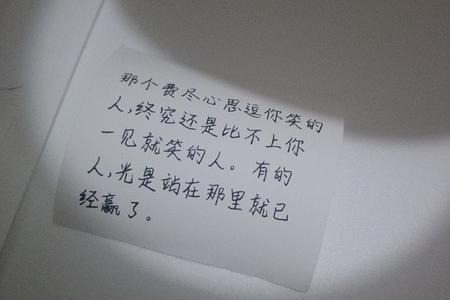 那个费尽心思逗你笑的
人,终究还是比不上你
一见就笑的人。有的
人,光是站在那里就已
经赢了。